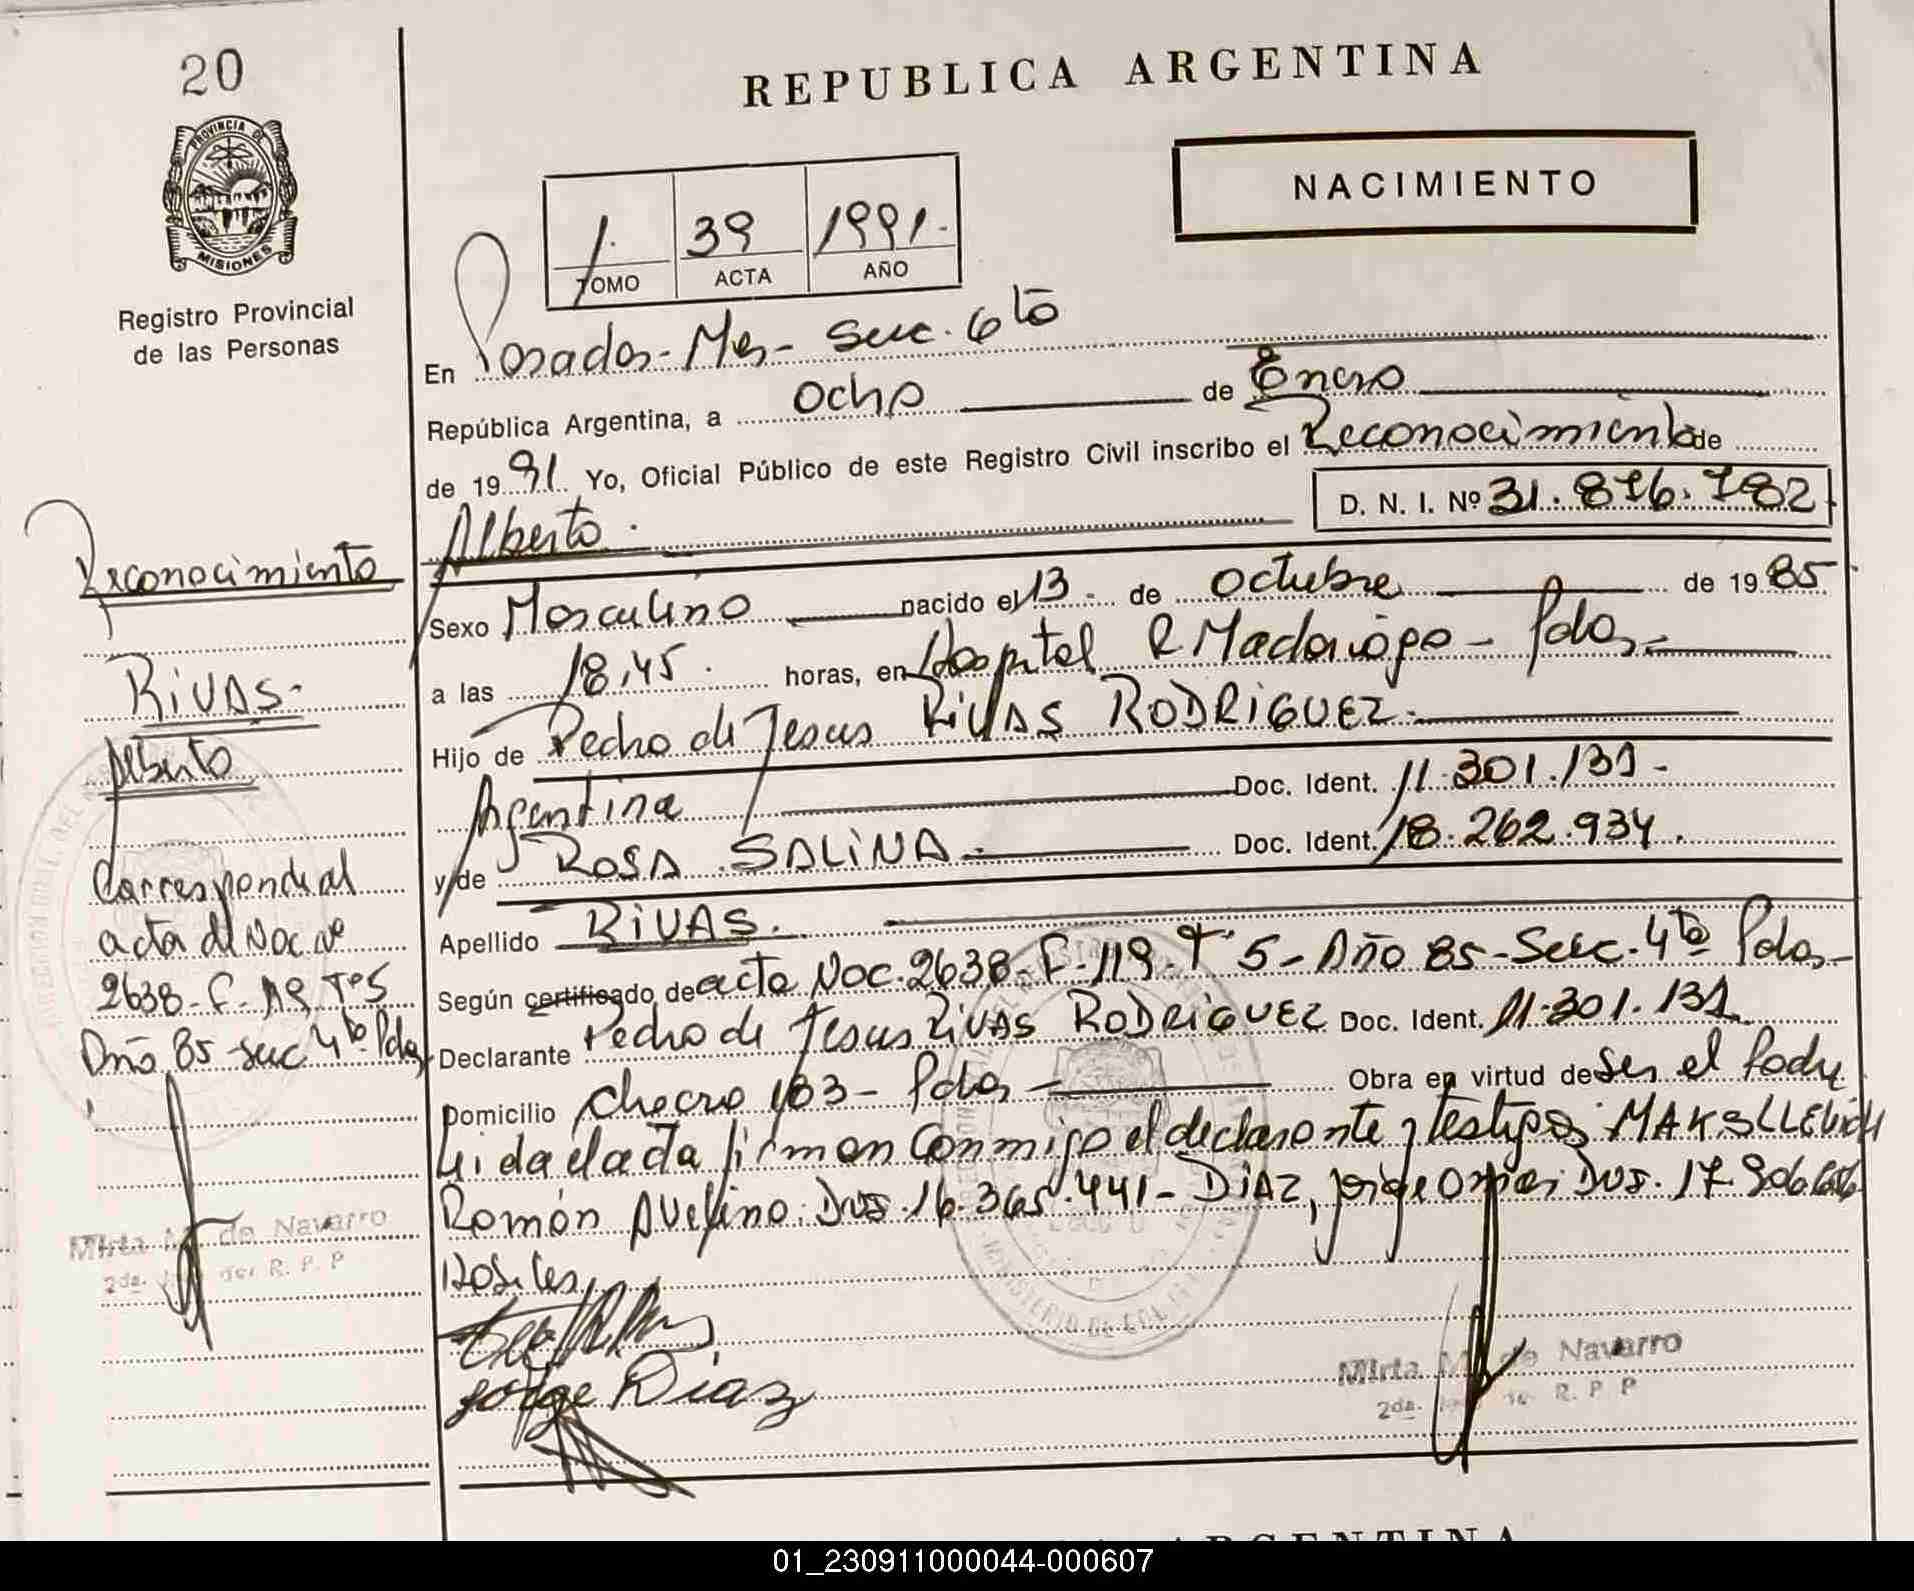 20
PROVINCIA DE
MISIONES
Registro Provincial
de las Personas
REPUBLICA ARGENTINA
NACIMIENTO
1. 39 1991.
TOMO ACTA AÑO
En Posadas - Mnes - Secc. 6ta
República Argentina, a ocho de Enero
de 1991 Yo, Oficial Público de este Registro Civil inscribo el Reconocimiento de
D. N. I. Nº 31.876.782
Alberto.
Sexo Masculino nacido el 13 - de octubre de 1985
a las 18,45. horas, en Hospital R Madariaga - Pdas -
Hijo de Pedro de Jesus RIVAS RODRIGUEZ.
Argentina Doc. Ident. 11.301.131 -
y de ROSA SALINA - Doc. Ident. 18.262.934.
Apellido RIVAS.
Según certificado de acta Nac. 2638 - F - 119 - Tº 5 - Año 85 - Secc. 4ta Pdas -
Declarante Pedro de Jesus RIVAS RODRIGUEZ Doc. Ident. 11.301.131
Domicilio Chacra 183 - Pdas - Obra en virtud de ser el Padre
Leida el acta firman conmigo el declarante y testigos: MAKSLLEVICH
Román Avelino. DNI. 16.365.441 - DIAZ, Jorge Omar DNI. 17.906.
Jorge Diaz
Mirta M. de Navarro
2da. R. P. P
Reconocimiento
RIVAS.
Alberto
Corresponde al
acta de Nac. nº
2638 - F - 119 Tº 5
Año 85 - secc 4ta Pdas
Mirta M. de Navarro
2da. del R. P. P
ARGENTINA
01_230911000044-000607